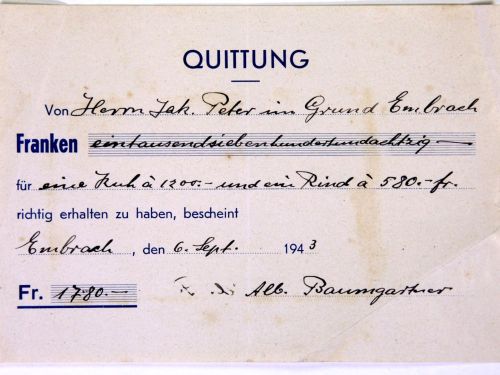 QUITTUNG
Von Herrn Jak. Peter im Grund Embrach
Franken eintausendsiebenhundertundachtzig
für eine Kuh à 1200.- und ein Rind à 580.- fr.
richtig erhalten zu haben, bescheint
Embrach, den 6. Sept. 1943
Fr. 1780.- Alb. Baumgartner